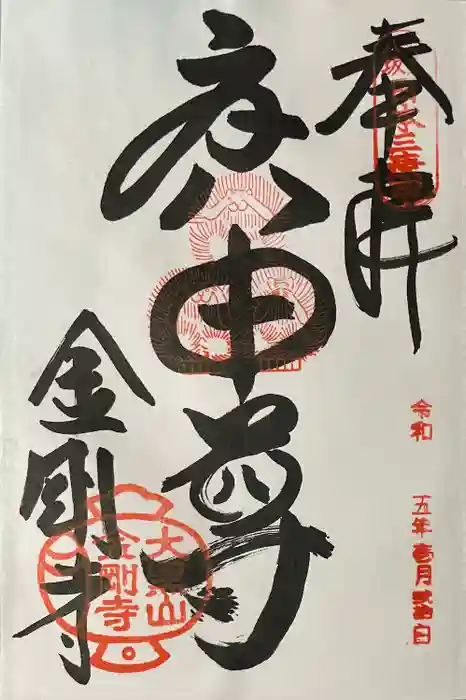 奉拝
令和 五年壱月
庚申尊
金剛寺
大黒山
金剛寺